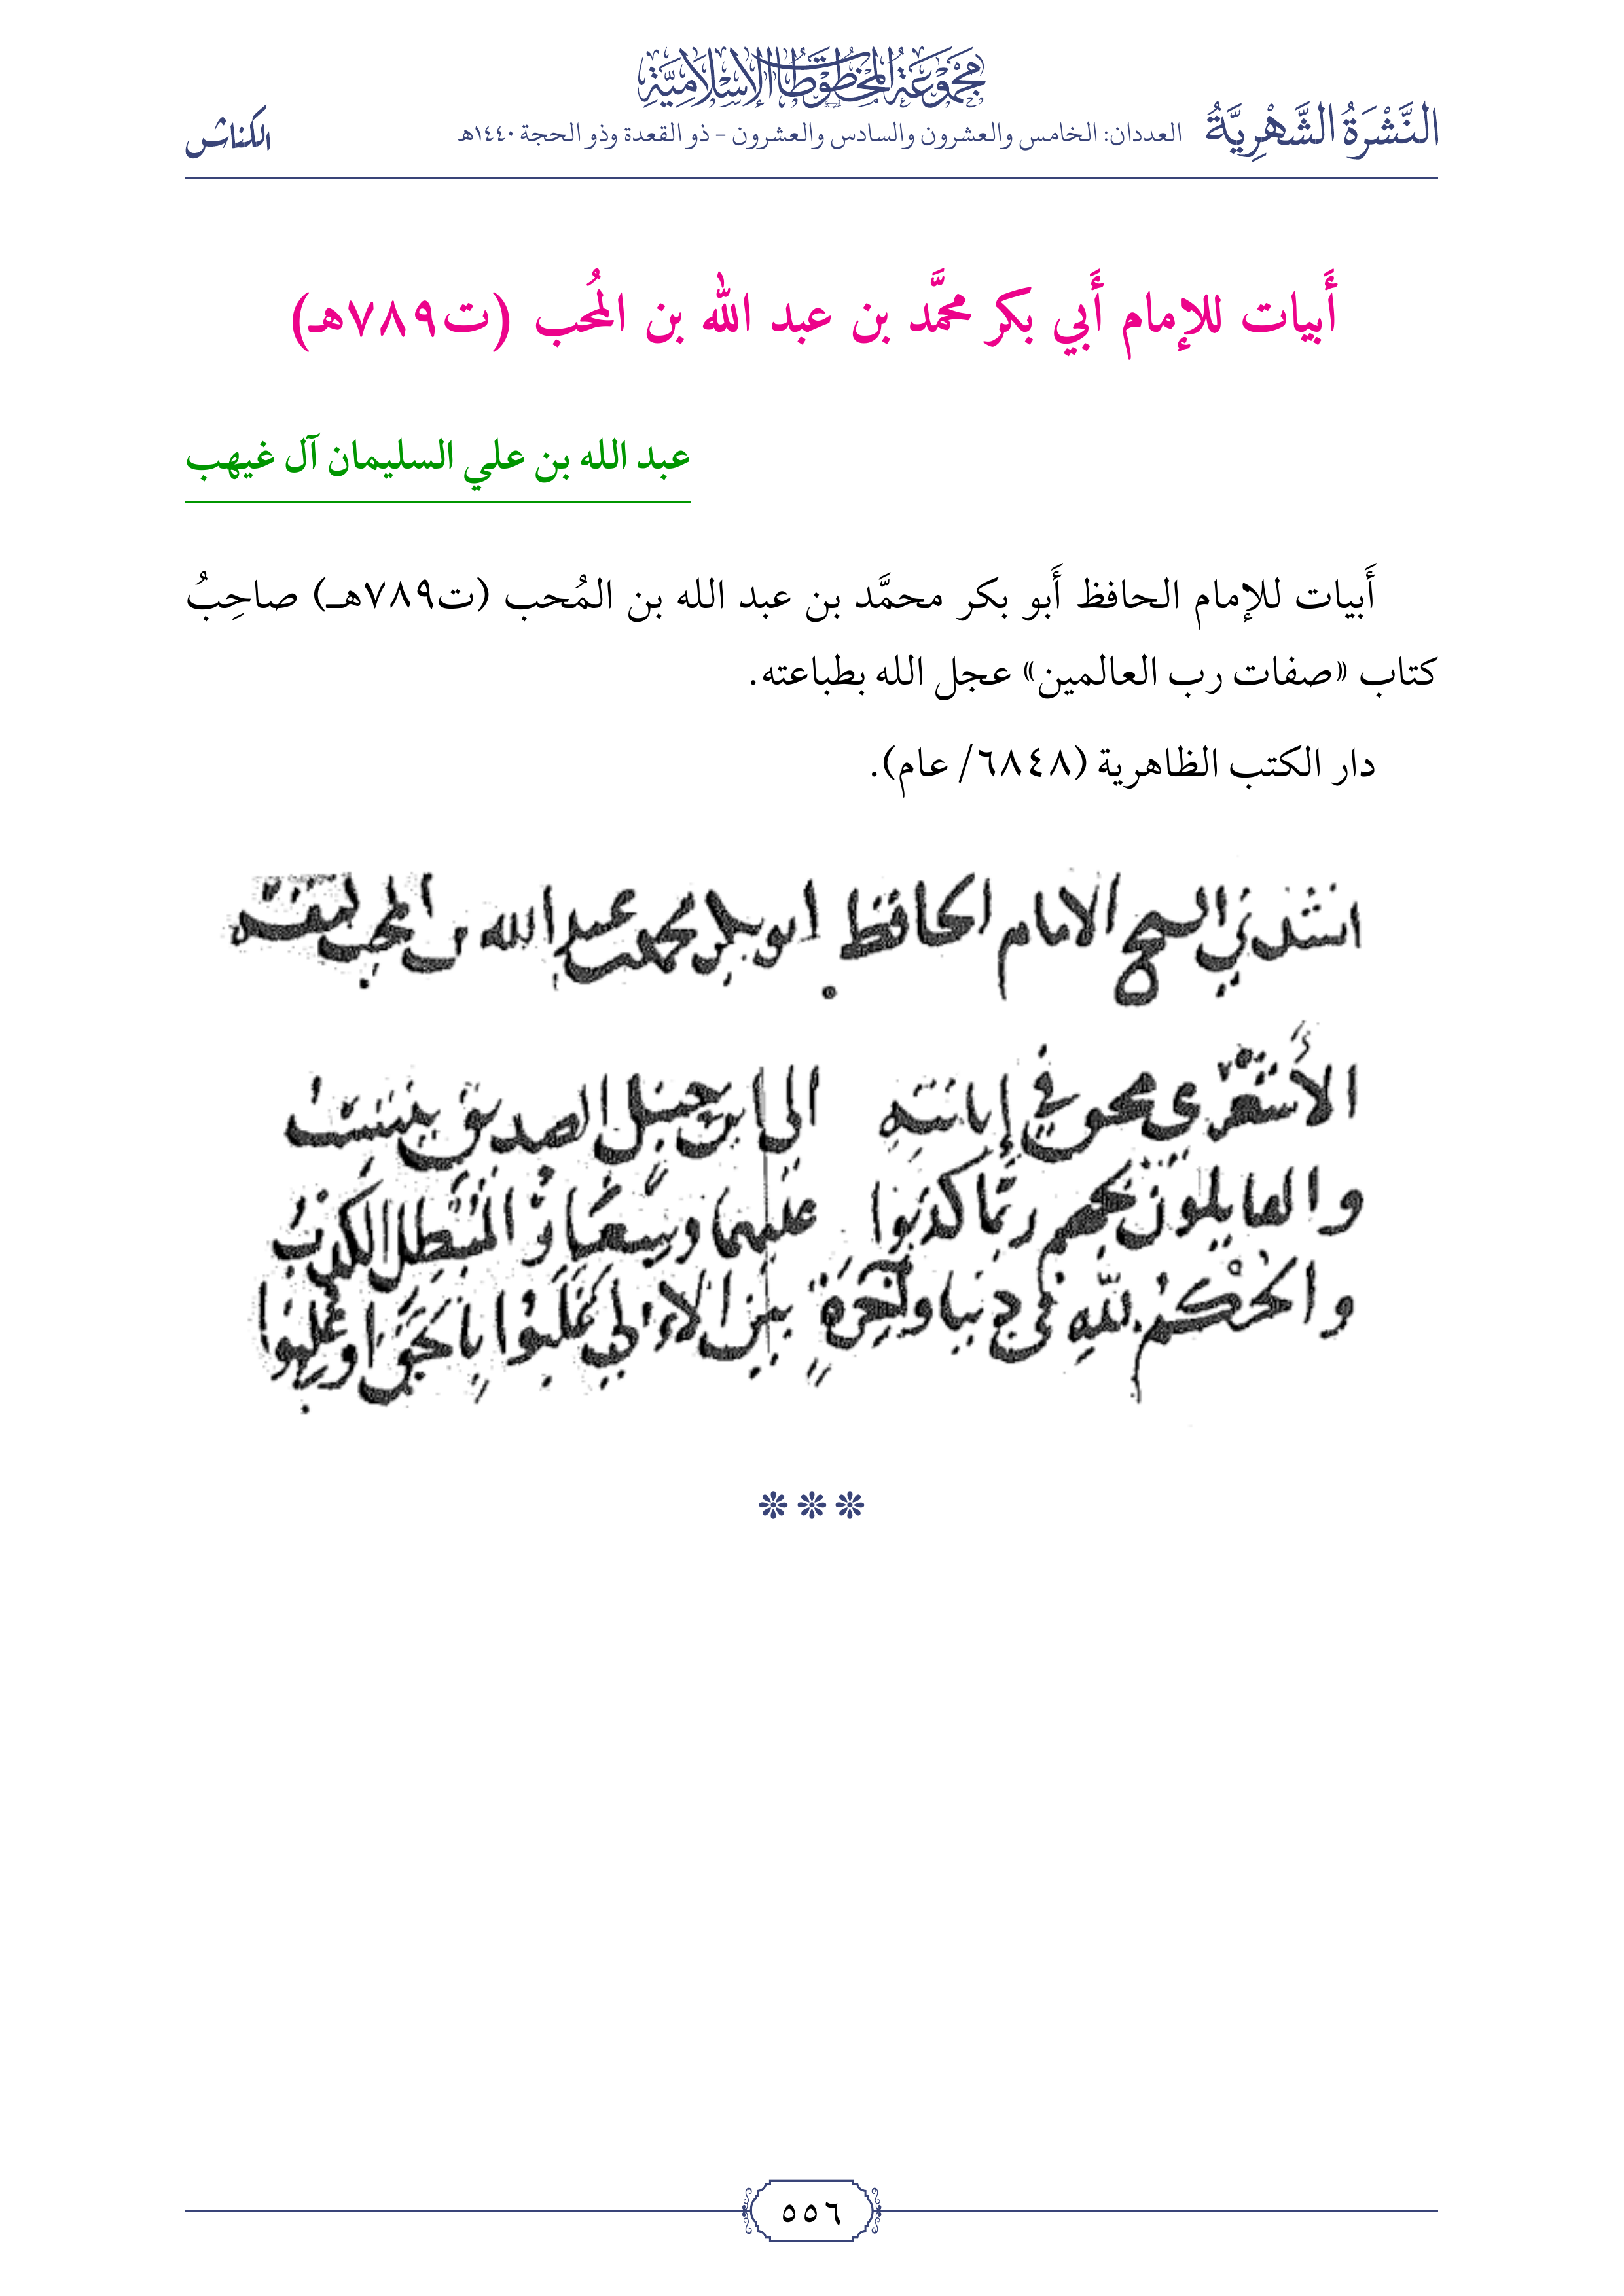 مجموعة المخطوطات الإسلامية
النَّشْرَةُ الشَّهْرِيَّةُ العددان: الخامس والعشرون والسادس والعشرون - ذو القعدة وذو الحجة ١٤٤٠هـ الكناش
أَبيات للإمام أَبي بكر محمَّد بن عبد الله بن المُحب (ت٧٨٩هـ)
عبد الله بن علي السليمان آل غيهب
أَبيات للإمام الحافظ أَبو بكر محمَّد بن عبد الله بن المُحب (ت٧٨٩هـ) صاحِبُ
كتاب «صفات رب العالمين» عجل الله بطباعته.
دار الكتب الظاهرية (٦٨٤٨/ عام).
انشدني الشيخ الامام الحافظ ابو بكر محمد بن عبد الله بن المحب لنفسه
الأشعري محق في إبانته الى ابن حنبل الصديق ينتسب
والقايلون بجهم ربما كذبوا عليهما وسعيا والمبطل الكذب
والحكم لله في دنيا وآخرة بين الاءلي غلبوا بالحق او غلبوا
٥٥٦